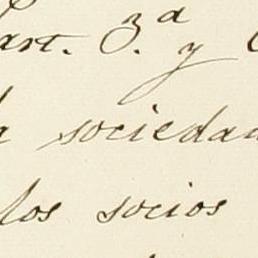 art. 3.ª y
sociedad
los socios